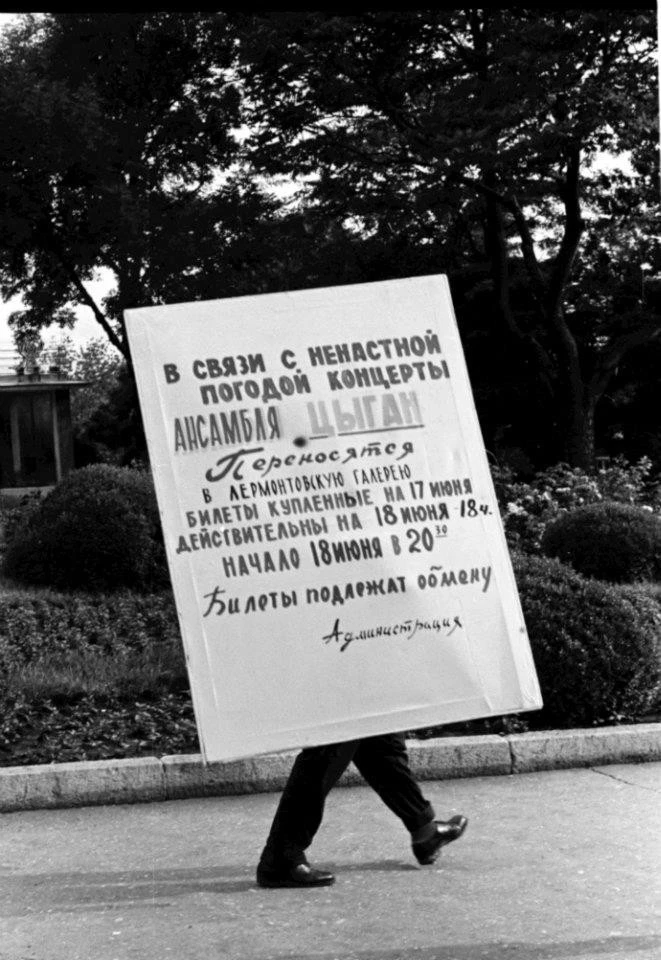 В СВЯЗИ С НЕНАСТНОЙ
ПОГОДОЙ КОНЦЕРТЫ
АНСАМБЛЯ ЦЫГАН
Переносятся
В ЛЕРМОНТОВСКУЮ ГАЛЕРЕЮ
БИЛЕТЫ КУПЛЕННЫЕ НА 17 ИЮНЯ
ДЕЙСТВИТЕЛЬНЫ НА 18 ИЮНЯ 18ч.
НАЧАЛО 18 ИЮНЯ В 20 30
Билеты подлежат обмену
Администрация